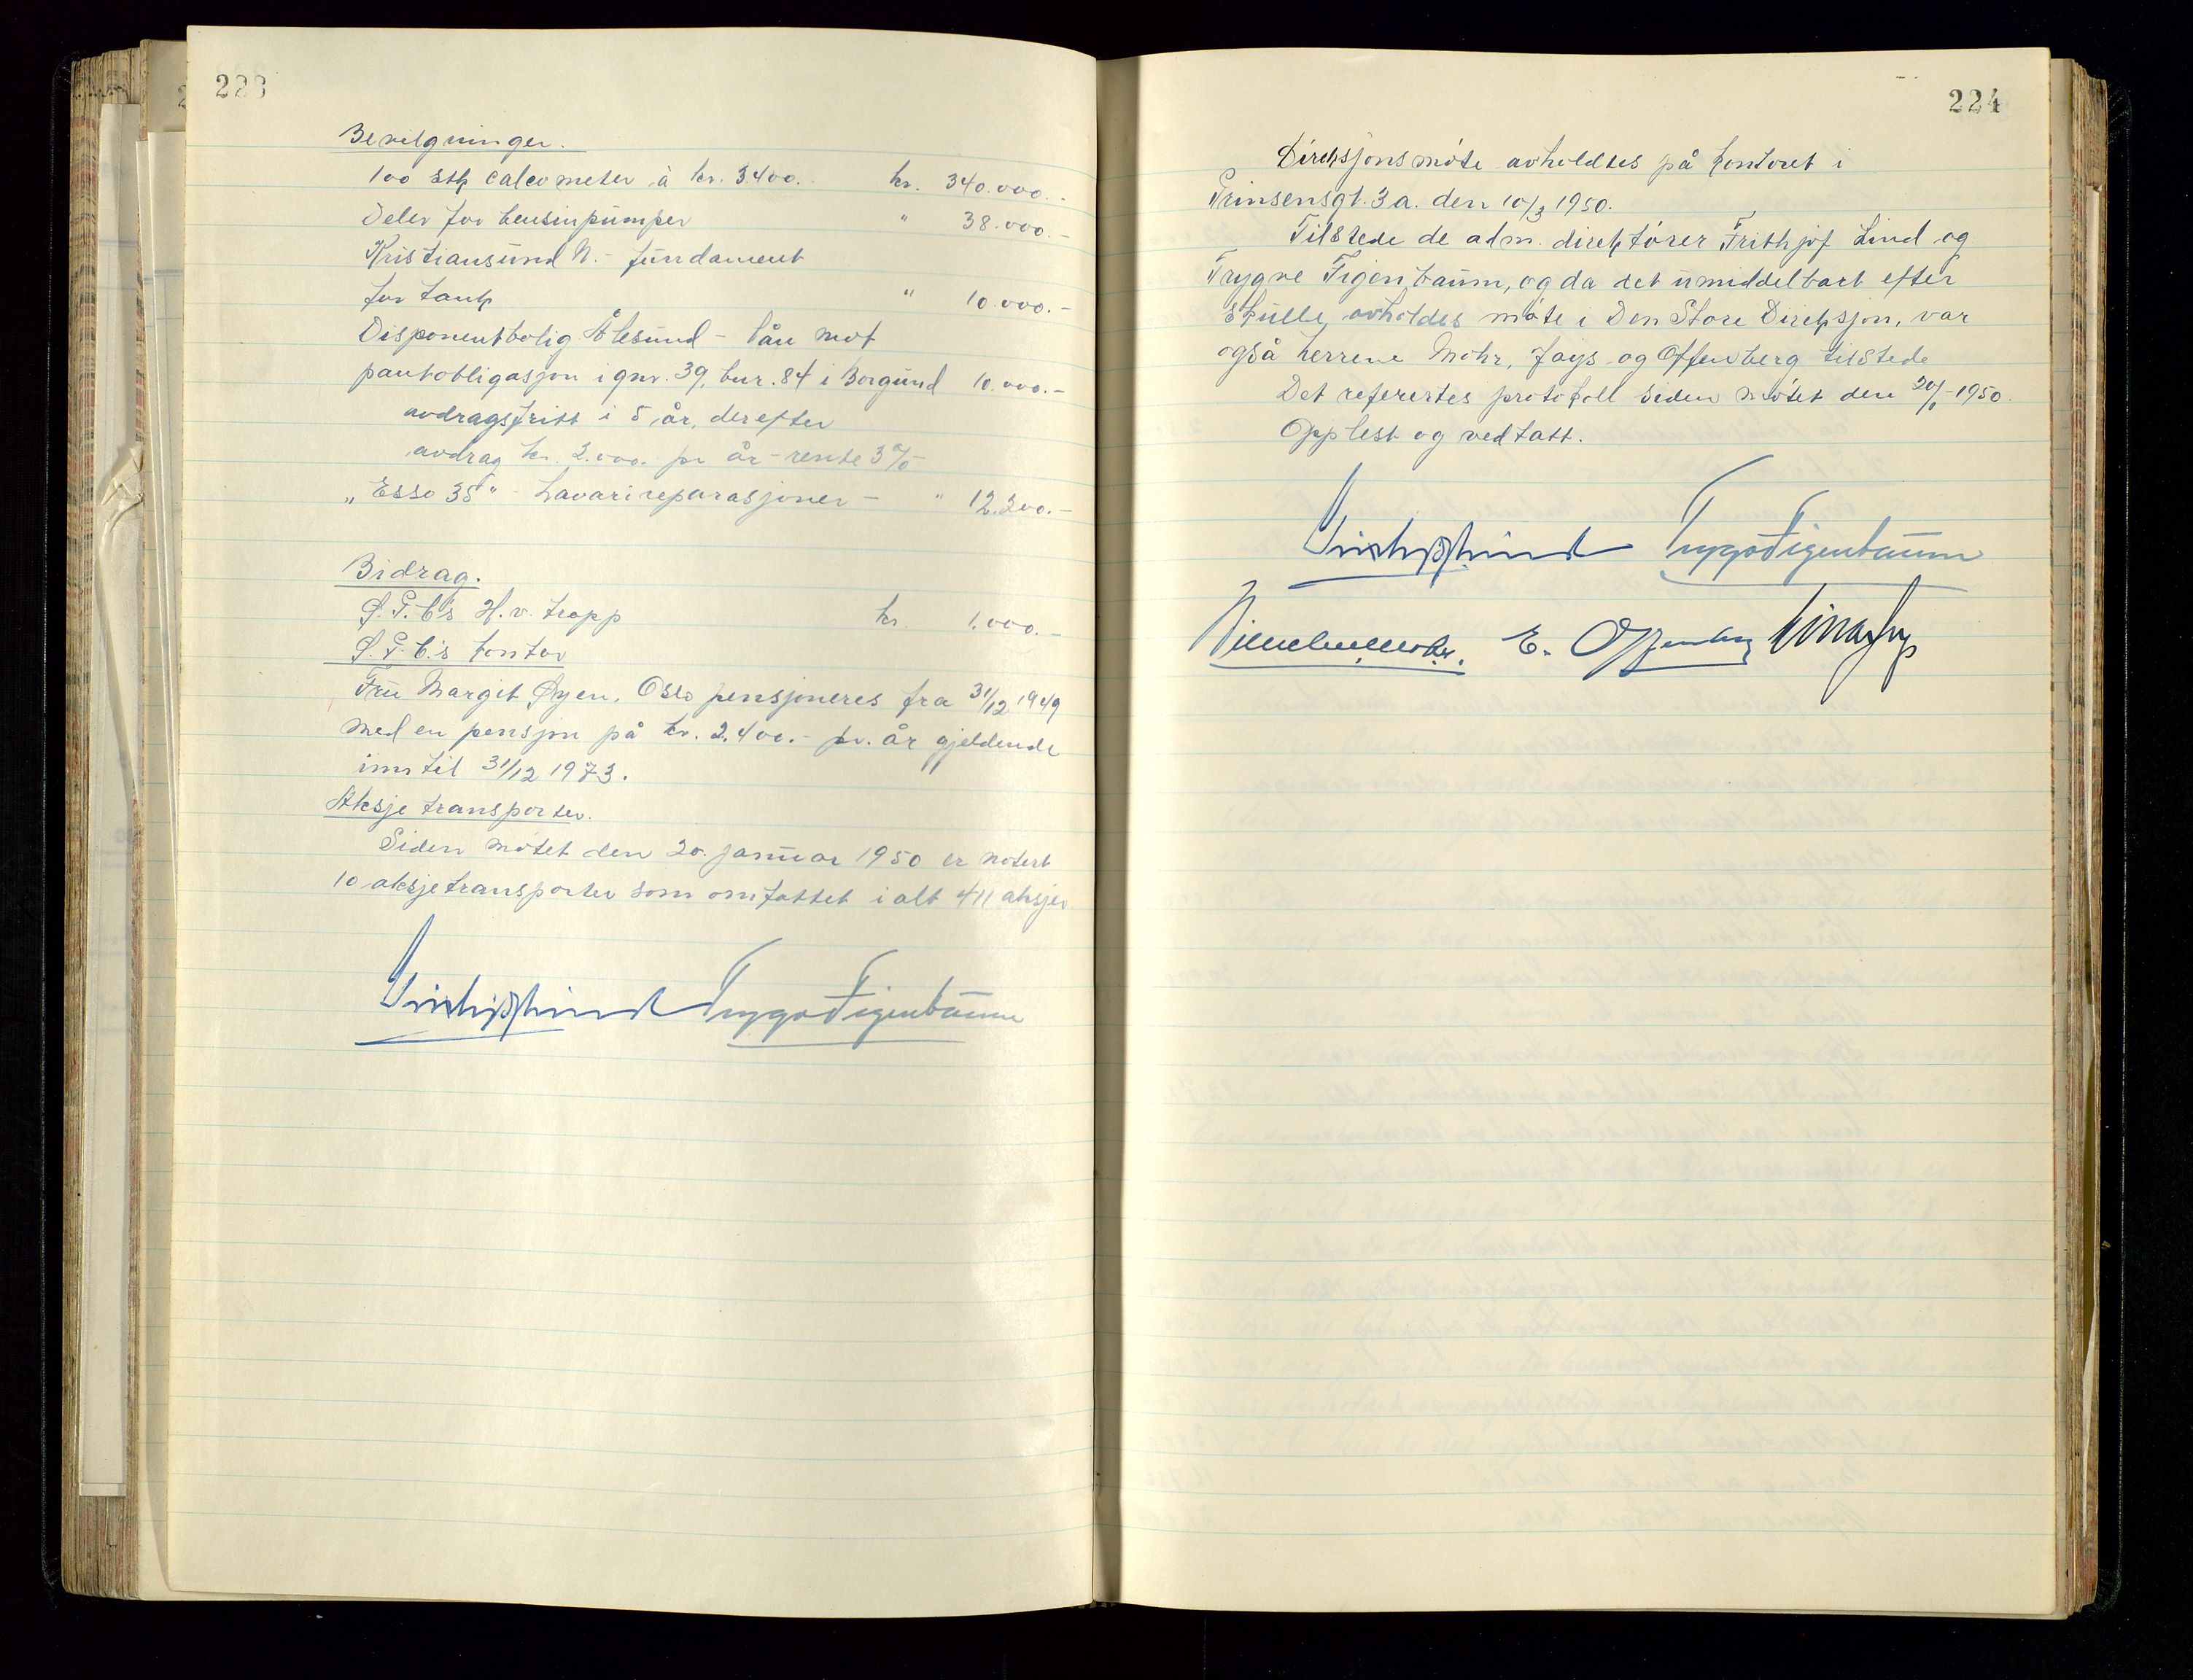 223
Bevilgninger.
100 stk calcometer à kr. 3.400.- kr. 340.000.-
Deler for bensinpumper " 38.000.-
Kristiansund N. - fundament
for tank " 10.000.-
Disponentbolig Ålesund - lån mot
pantobligasjon i gnr. 39, bnr. 84 i Borgund 10.000.-
avdragsfritt i 5 år, derefter
avdrag kr. 2.000. pr år - rente 3%
"Esso 35" - havarireparasjoner - " 12.200.-
Bidrag.
H.v. tropp kr 1.000.-
kontor
Fru Margit Øyen, Oslo pensjoneres fra 31/12 1949
med en pensjon på kr. 2.400.- pr. år gjeldende
inntil 31/12 1973.
Aksjetransporter.
Siden møtet den 20. januar 1950 er notert
10 aksjetransporter som omfattet i alt 411 aksjer
Frithjof Lind Trygve Figenbaum
224
Direksjonsmøte avholdtes på kontoret i
Prinsensgt. 3a. den 10/3 1950.
Tilstede de adm. direktører Frithjof Lind og
Trygve Figenbaum, og da det umiddelbart efter
skulle avholdes møte i Den Store Direksjon, var
også herrene Mohr, Jays og Offenberg tilstede
Det referertes protokoll siden møtet den 20/1-1950.
Opplest og vedtatt.
Frithjof Lind Trygve Figenbaum
Wilhelm Mohr. E. Offenberg Einar Jays